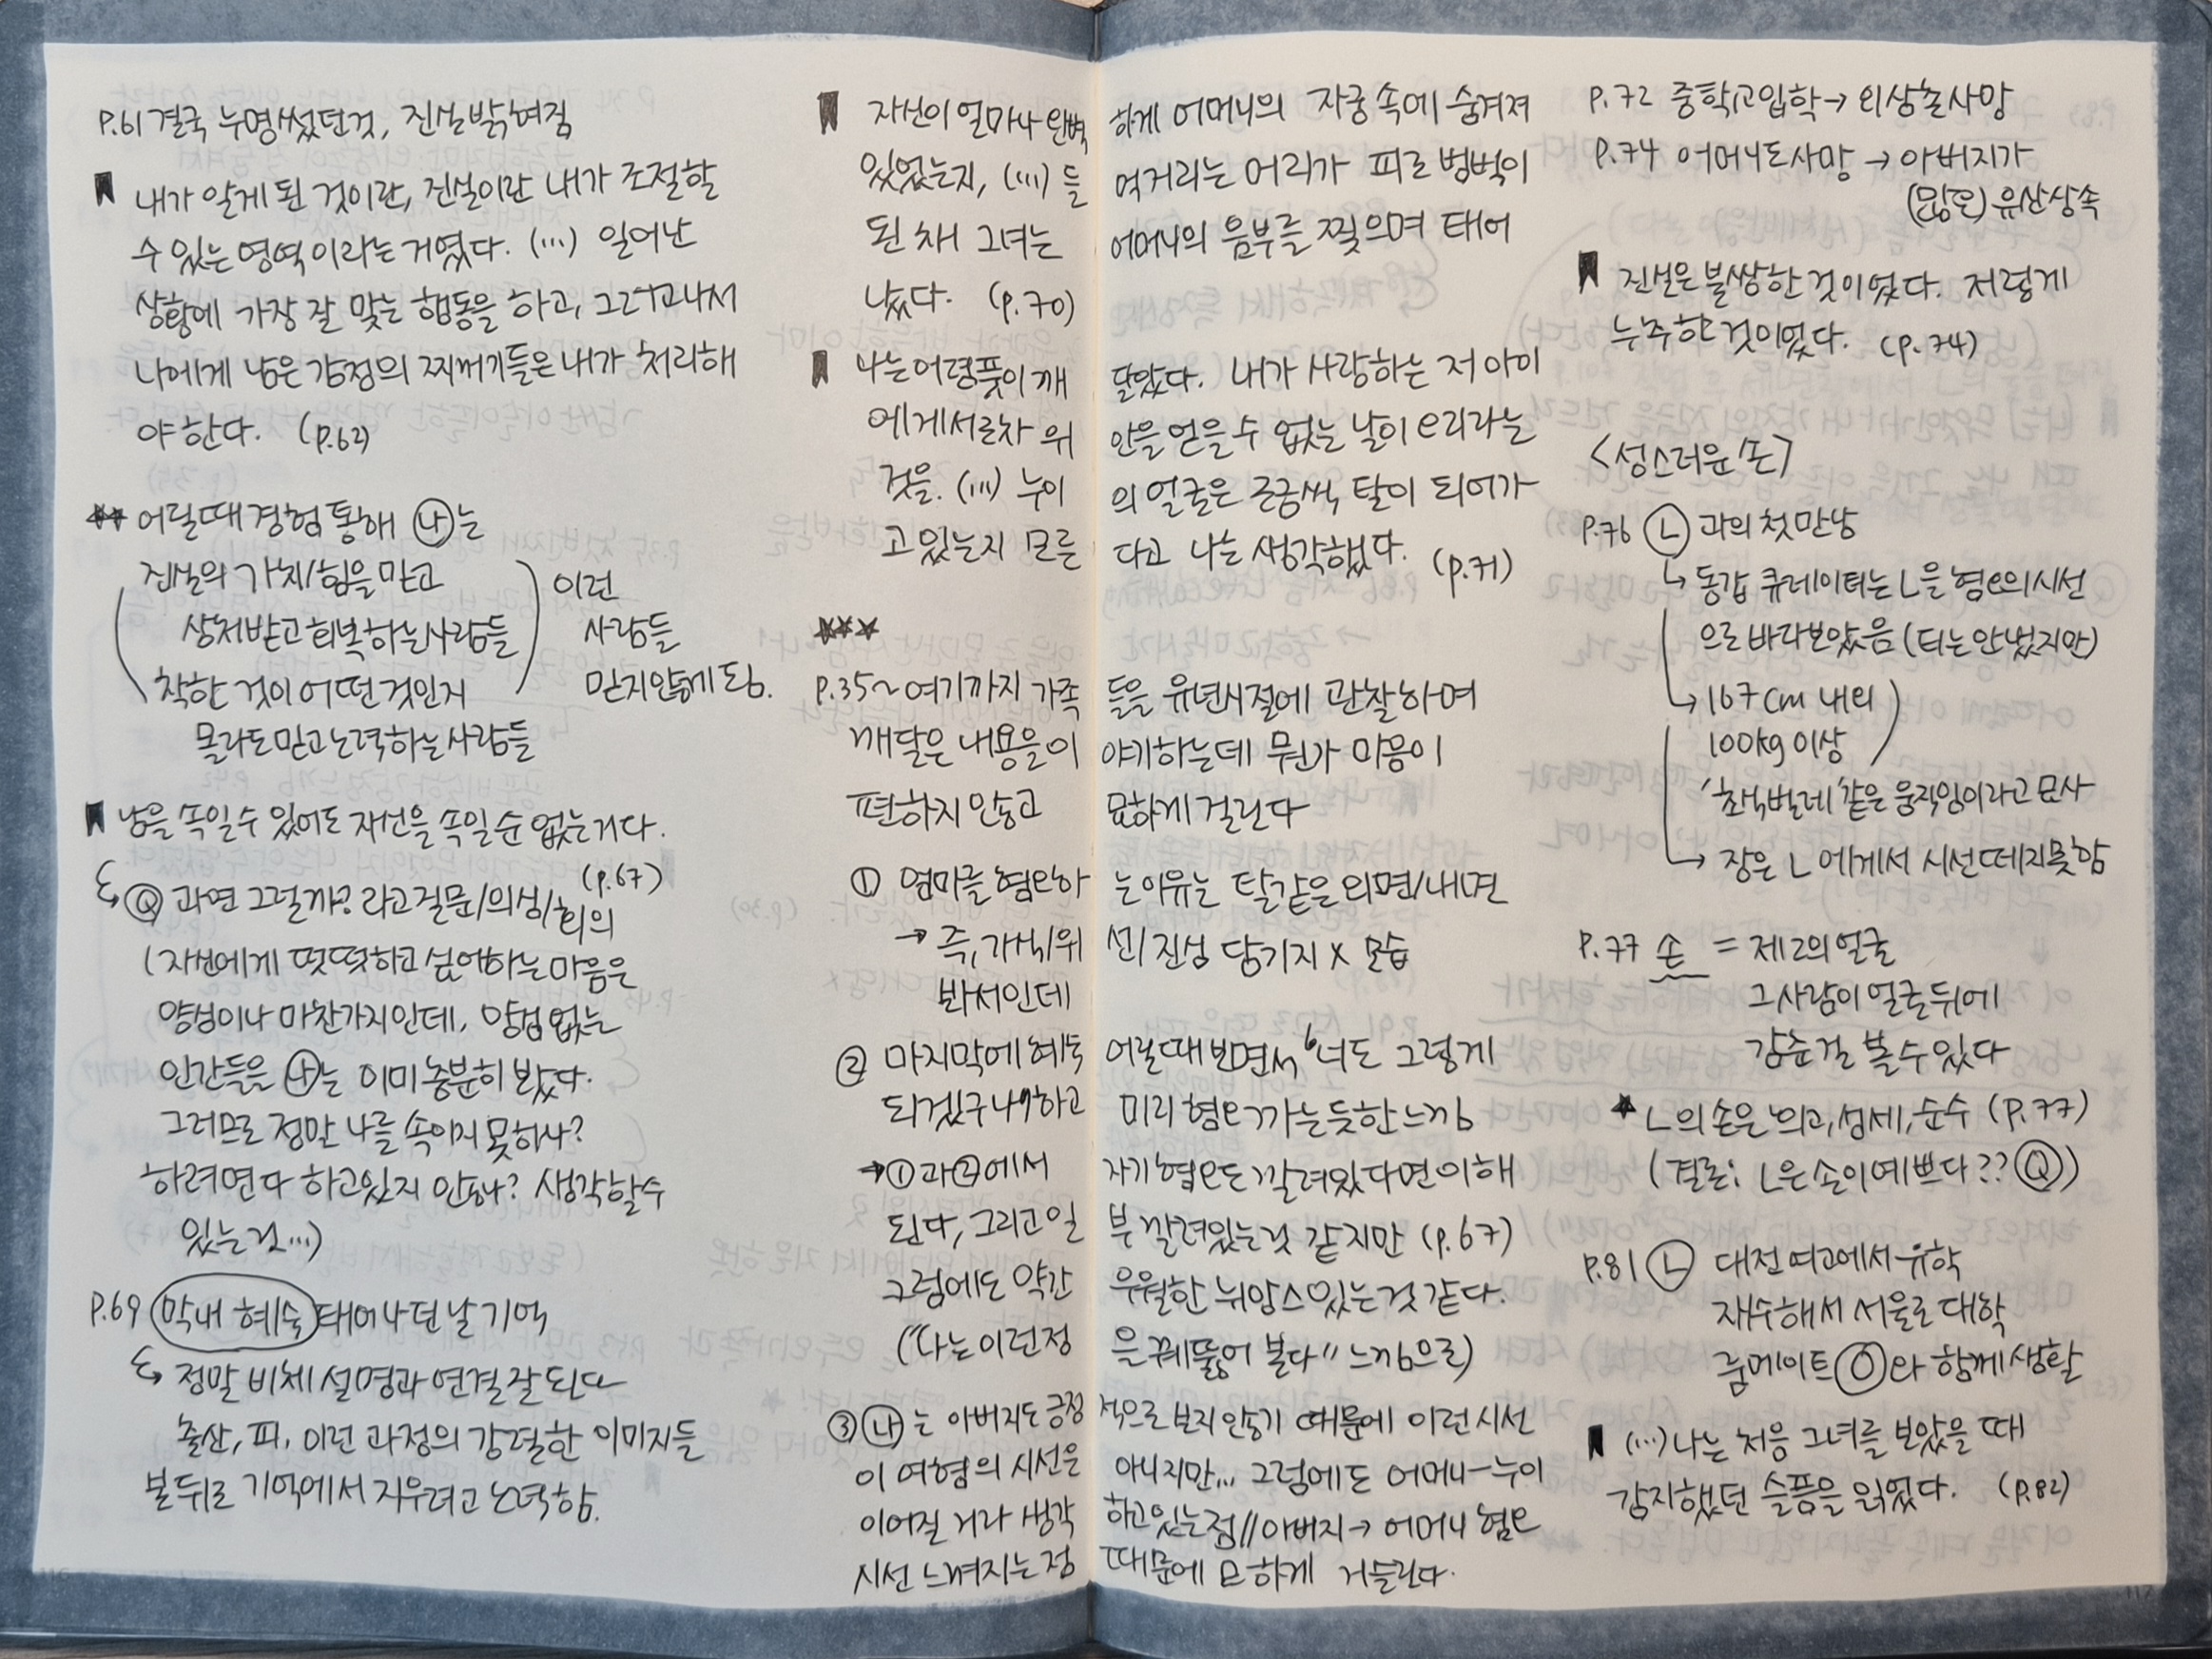 P.61 결국 누명썼던것, 진실 밝혀짐
내가 알게 된 것이란, 진실이란 내가 조절할
수 있는 영역이라는 거였다. (...) 일어난
상황에 가장 잘 맞는 행동을 하고, 그러고나서
나에게 남은 감정의 찌꺼기들은 내가 처리해
야 한다. (P.62)
★★ 어릴때 경험 통해 나는
진실의 가치/힘을 믿고
상처받고 회복하는 사람들
착한 것이 어떤것인지
몰라도 믿고 노력하는 사람들
이런
사람들
믿지않게 됨.
남을 속일 수 있어도 자신을 속일 순 없는거다.
(P.67)
Q 과연 그럴까? 라고 질문/의심/회의
(자신에게 떳떳하고 싶어하는 마음은
양심이나 마찬가지인데, 양심 없는
인간들을 나는 이미 충분히 봤다.
그러므로 정말 나를 속이지 못하나?
하려면 다 하고있지 않나? 생각할수
있는 것...)
P.69 막내 혜숙 태어나던 날 기억
정말 비체 설명과 연결 잘 된다
출산, 피, 이런 과정의 강렬한 이미지들
본 뒤로 기억에서 지우려고 노력함.
자신이 얼마나 완벽하게 어머니의 자궁 속에 숨겨져
있었는지, (...) 들여거리는 머리가 피로 범벅이
된 채 그녀는 어머니의 음부를 찢으며 태어
났다. (p.70)
나는 어렴풋이 깨달았다. 내가 사랑하는 저 아이
에게서조차 위안을 얻을 수 없는 날이 오리라는
것을. (...) 누이의 얼굴은 조금씩 탈이 되어가
고 있는지 모른다고 나는 생각했다. (p.71)
★★★
P.35~ 여기까지 가족들을 유년시절에 관찰하며
깨달은 내용을 이야기하는데 뭔가 마음이
편하지 않고 묘하게 걸린다
① 엄마를 혐오하는 이유는 탈같은 외면/내면
→ 즉, 가식/위선/진심 담기지 x 모습
봐서인데
② 마지막에 혜숙 어릴때 보면서 '너도 그렇게
되겠구나'하고 미리 혐오가는듯한 느낌
→①과②에서 자기혐오도 깔려있다면 이해
된다, 그리고 일부 깔려있는것 같지만 (p.67)
그럼에도 약간 우월한 뉘앙스 있는것 같다.
("나는 이런 점을 꿰뚫어 본다" 느낌으로)
③ 나는 아버지도 긍정적으로 보지 않기 때문에 이런 시선
이 여혐의 시선은 아니지만... 그럼에도 어머니-누이
이어질 거라 생각하고있는 점//아버지→어머니 혐오
시선 느껴지는 점 때문에 묘하게 거슬린다.
P.72 중학교입학→외삼촌사망
P.74 어머니도사망→아버지가
(많은) 유산상속
진실은 불쌍한 것이었다. 저렇게
누추한 것이었다. (p.74)
<성스러운 손>
P.76 L 과의 첫만남
동갑 큐레이터는 L을 혐오의 시선
으로 바라보았음 (티는 안냈지만)
167cm 내외
100kg 이상
'초식벌레' 같은 움직임이라고 묘사
장은 L에게서 시선 떼지못함
P.77 손 = 제2의 얼굴
그사람이 얼굴뒤에
감춘걸 볼 수 있다
★ L의 손은 외고, 섬세, 순수 (P.77)
(결론: L은 손이 예쁘다?? Q)
P.81 L 대전 여고에서 유학
재수해서 서울로 대학
룸메이트 O와 함께 생활
(...) 나는 처음 그녀를 보았을 때
감지했던 슬픔을 읽었다. (p.82)